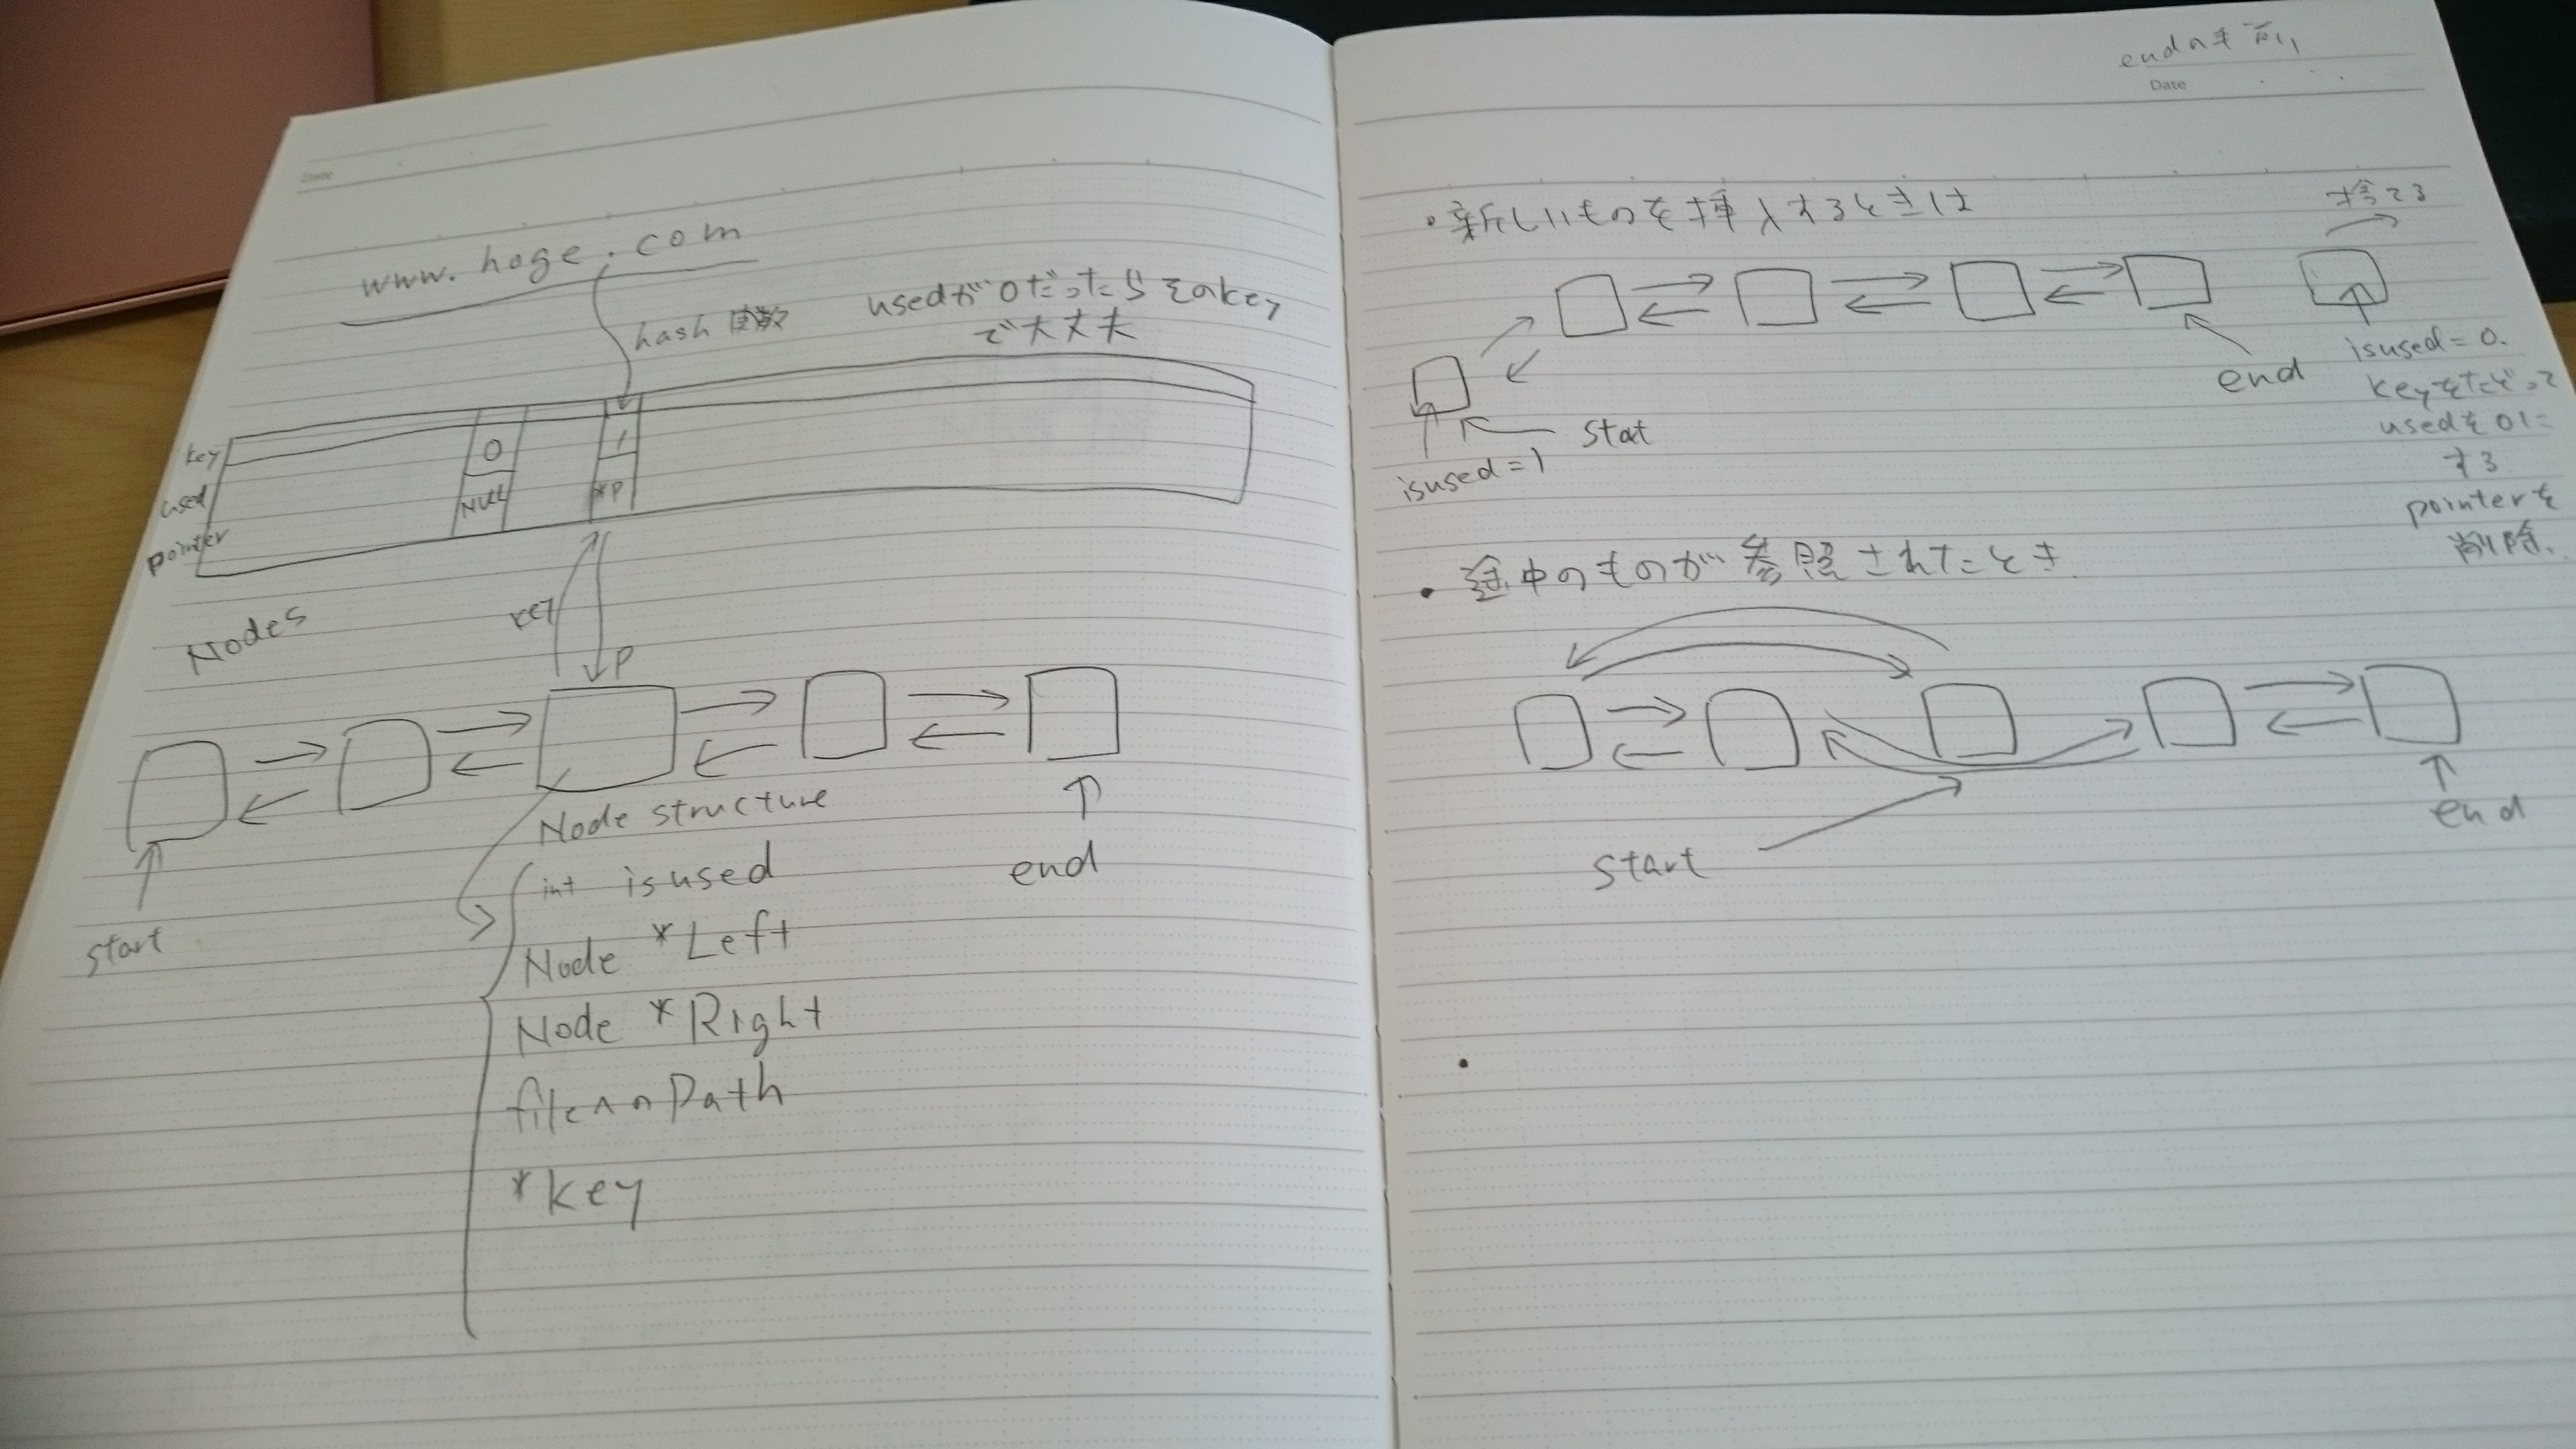 Date
www.hoge.com
hash 関数
usedが0だったらそのkey
で大丈夫
key
used
pointer
0
NULL
1
*P
key
P
Nodes
start
end
Node structure
int isused
Node *Left
Node *Right
fileへのPath
*key
endの手前
Date
・新しいものを挿入するときは
捨てる
isused=1
Stat
end
isused=0.
keyをたどって
usedを0に
する
pointerを
削除.
・途中のものが参照されたとき
start
end
・